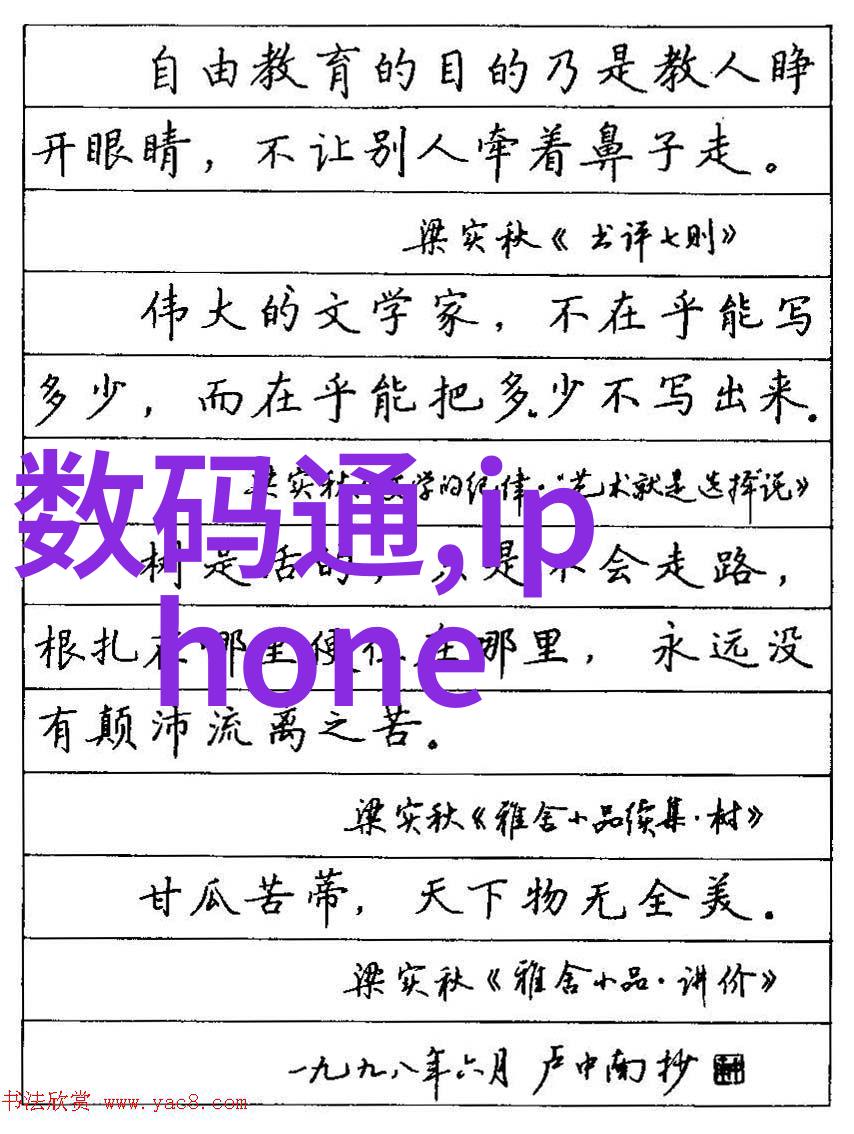 自由教育的目的乃是教人睁
开眼睛，不让别人牵着鼻子走。
梁实秋《书评七则》
伟大的文学家，不在乎能写
多少，而在乎能把多少不写出来。
梁实秋 文学的纪律·“艺术就是选择”说》
数码通,ip
树是活的，只是不会走路，
根扎在哪里便住在那里，永远没
hone
有颠沛流离之苦。
梁实秋《雅舍小品续集·树》
甘瓜苦蒂，天下物无全美。
梁实秋《雅舍小品·讲价》
一九九八年六月 卢中南抄
书法欣赏 www.yac8.com